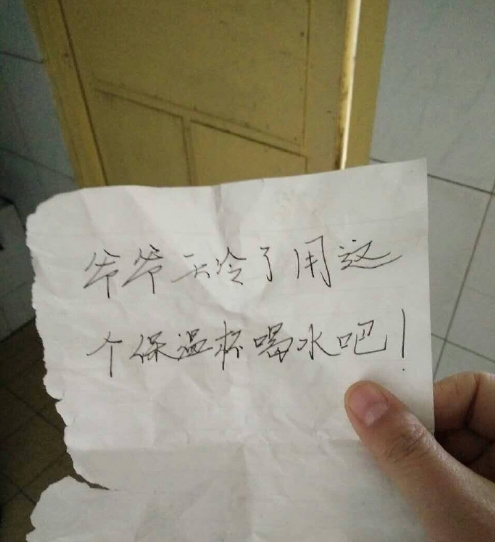 爷爷天冷了用这
个保温杯喝水吧！